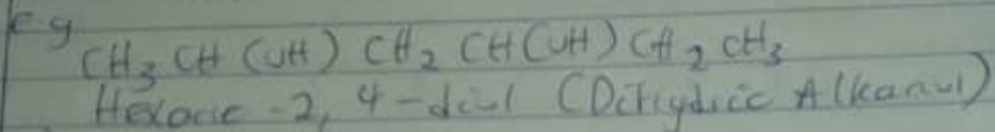 e.g
CH₃ CH (OH) CH₂ CH(OH) CH₂ CH₃
Hexane -2, 4-diol (Dihydric Alkanol)